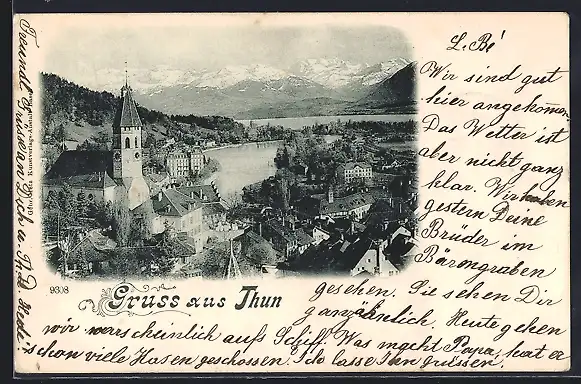 L. Bé
Wir sind gut
hier angekommen.
Das Wetter ist
aber nicht ganz
klar. Wir haben
gestern Deine
Brüder im
Bärengraben
gesehen. Sie sehen Dir
ganz ähnlich. Heute gehen
wir warscheinlich aufs Schiff. Was macht Papa, hat er
schon viele Hasen geschossen? Ich lasse Ihn grüssen.
Freundl. Grüsse an Dich u.
Kunstverlags-Anstalt
9308
Gruss aus Thun